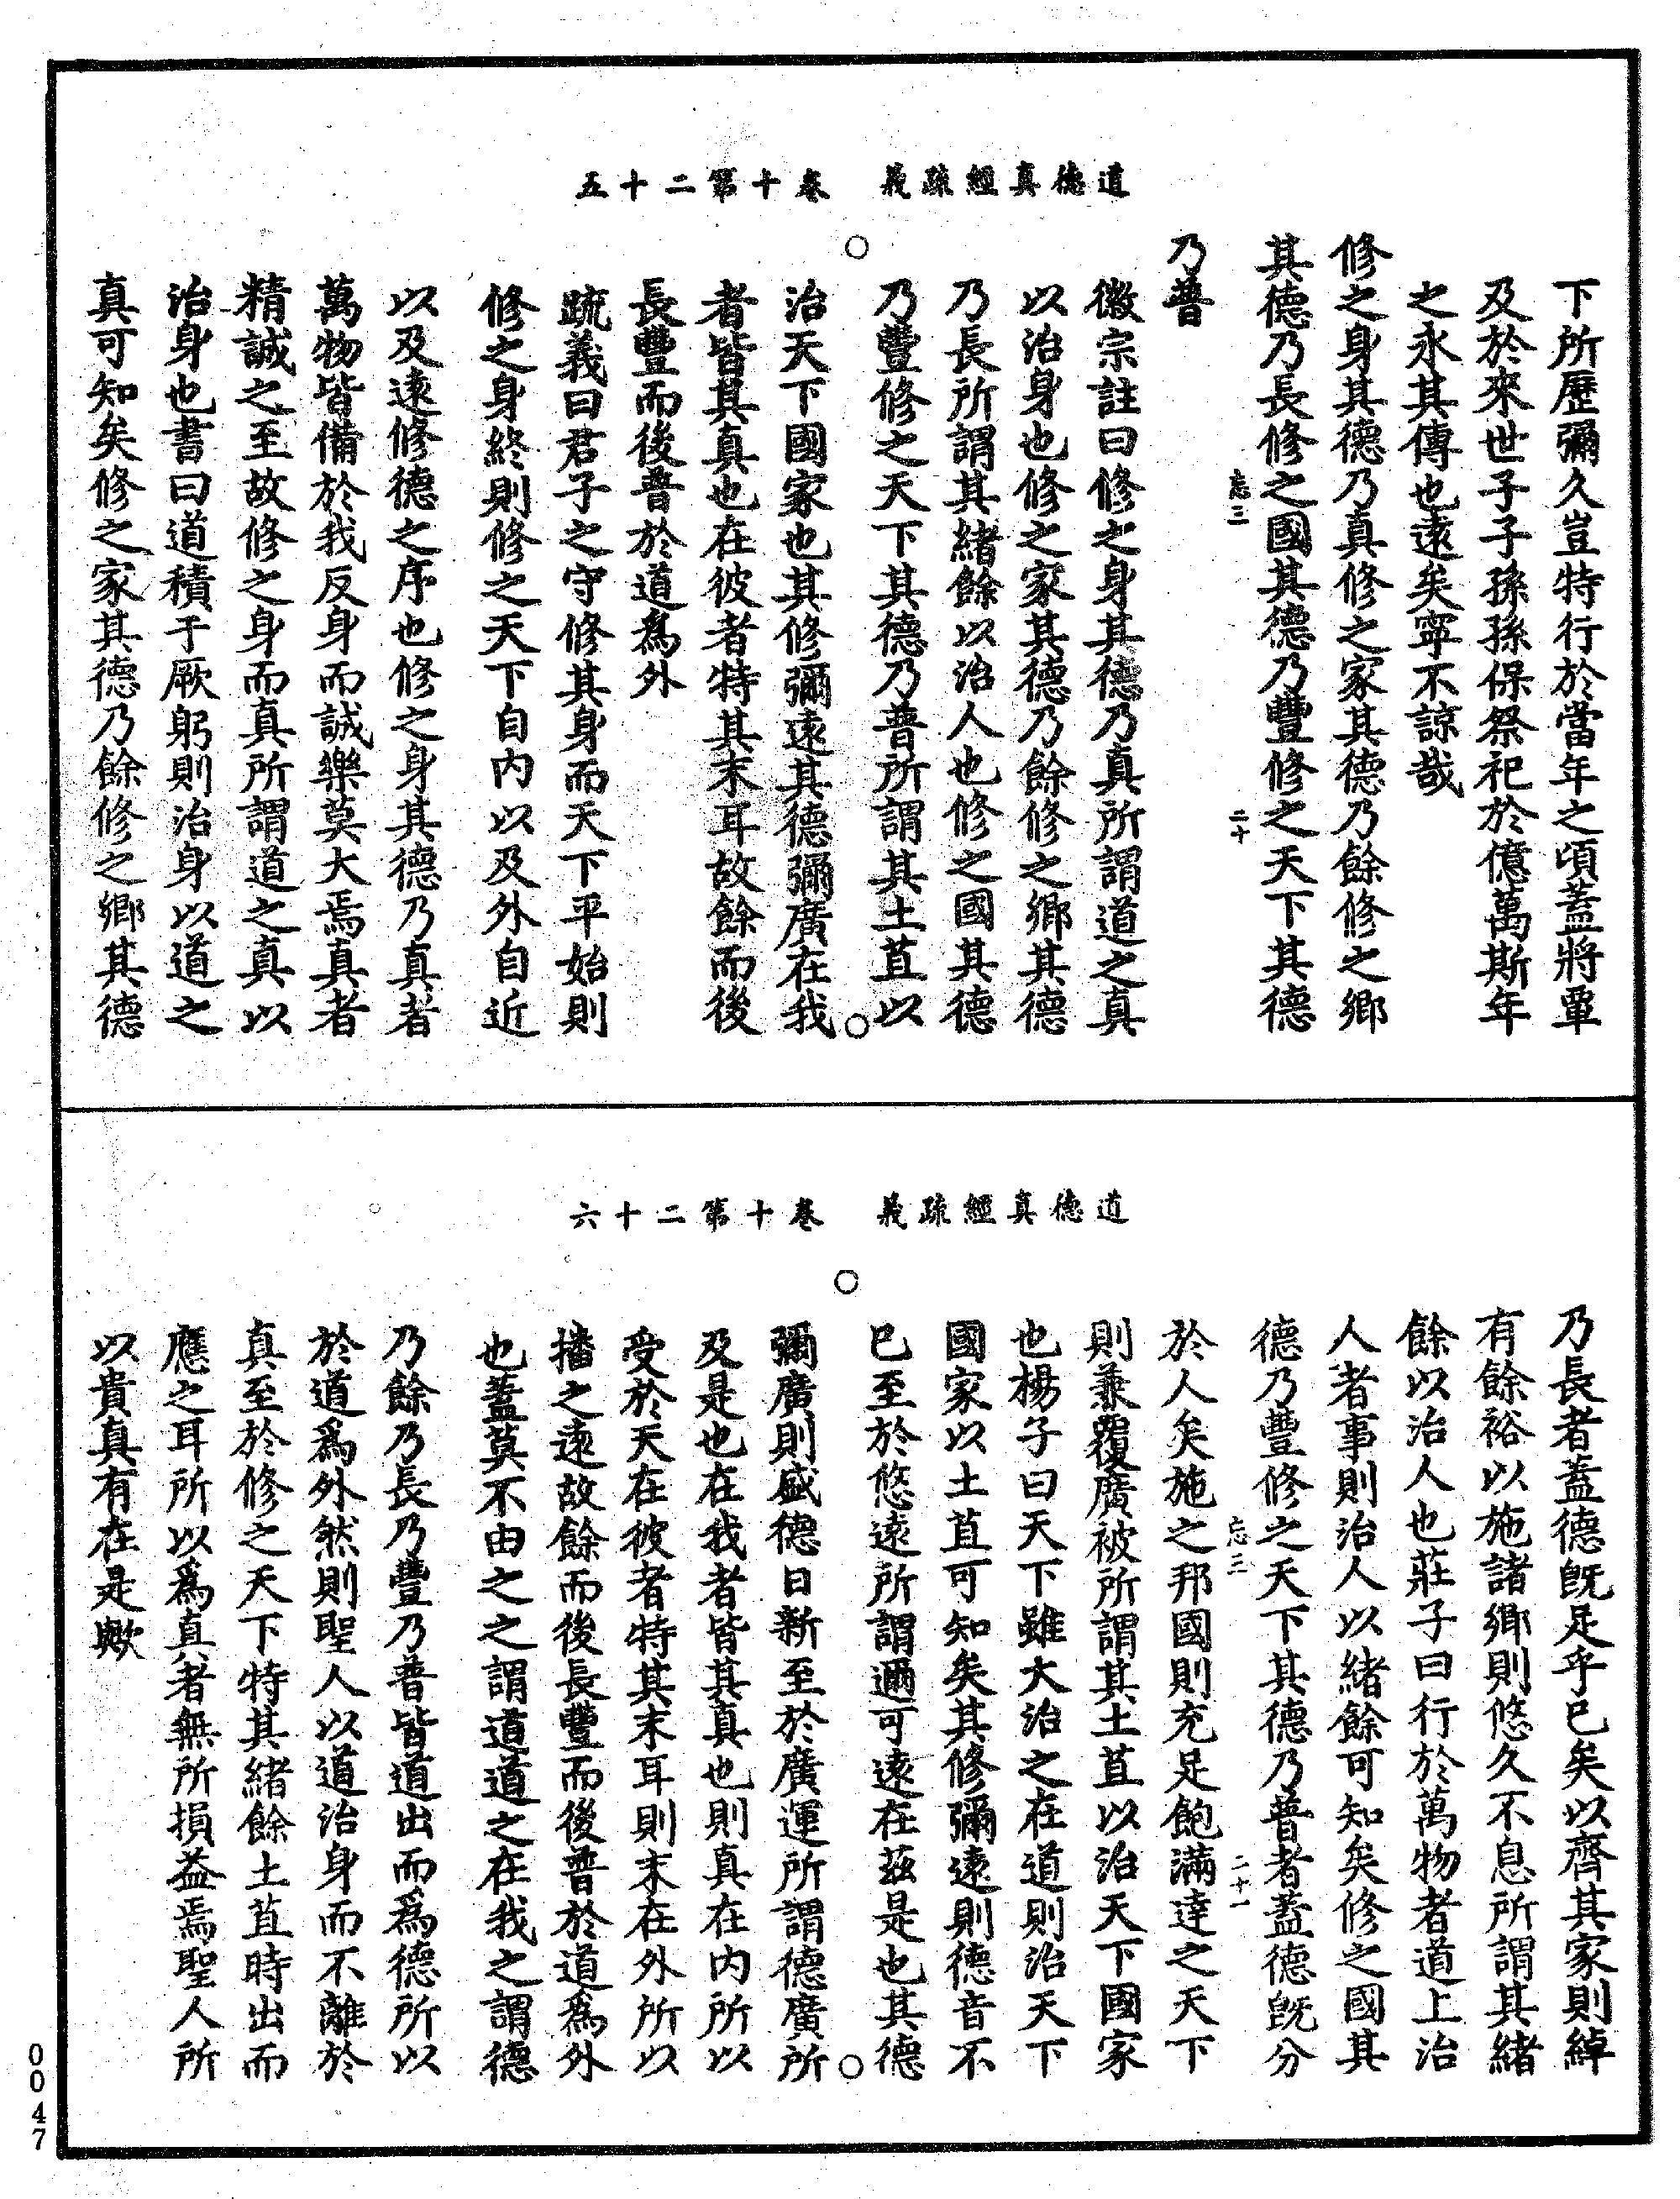 道德真經疏義　卷十第二十五
下所歷彌久豈特行於當年之頃蓋將覃
及於來世子子孫孫保祭祀於億萬斯年
之永其傳也遠矣寧不諒哉
修之身其德乃真修之家其德乃餘修之鄉
其德乃長修之國其德乃豐修之天下其德
忘三　二十
乃普
徽宗註曰修之身其德乃真所謂道之真
以治身也修之家其德乃餘修之鄉其德
乃長所謂其緒餘以治人也修之國其德
乃豐修之天下其德乃普所謂其土苴以
治天下國家也其修彌遠其德彌廣在我
者皆其真也在彼者特其末耳故餘而後
長豐而後普於道為外
疏義曰君子之守修其身而天下平始則
修之身終則修之天下自內以及外自近
以及遠修德之序也修之身其德乃真者
萬物皆備於我反身而誠樂莫大焉真者
精誠之至故修之身而真所謂道之真以
治身也書曰道積于厥躬則治身以道之
真可知矣修之家其德乃餘修之鄉其德
道德真經疏義　卷十第二十六
乃長者蓋德既足乎己矣以齊其家則綽
有餘裕以施諸鄉則悠久不息所謂其緒
餘以治人也莊子曰行於萬物者道上治
人者事則治人以緒餘可知矣修之國其
德乃豐修之天下其德乃普者蓋德既分
忘三　二十一
於人矣施之邦國則充足飽滿達之天下
則兼覆廣被所謂其土苴以治天下國家
也楊子曰天下雖大治之在道則治天下
國家以土苴可知矣其修彌遠則德音不
已至於悠遠所謂邇可遠在茲是也其德
彌廣則盛德日新至於廣運所謂德廣所
及是也在我者皆其真也則真在內所以
受於天在彼者特其末耳則末在外所以
播之遠故餘而後長豐而後普於道為外
也蓋莫不由之之謂道道之在我之謂德
乃餘乃長乃豐乃普皆道出而為德所以
於道為外然則聖人以道治身而不離於
真至於修之天下特其緒餘土苴時出而
應之耳所以為真者無所損益焉聖人所
以貴真有在是歟
0047